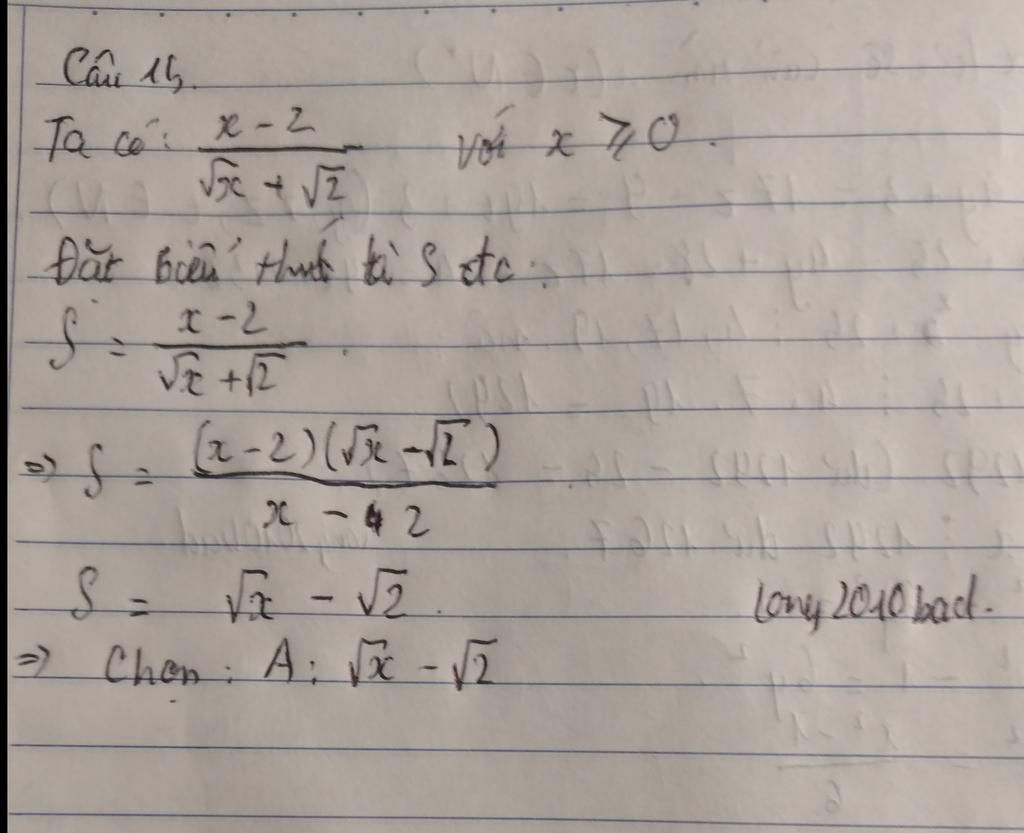 Câu 15.
Ta có: \frac{x-2}{\sqrt{x}+\sqrt{2}} với x ⩾ 0.
Đặt biểu thức là S đtc:
S = \frac{x-2}{\sqrt{x}+\sqrt{2}}.
=> S = \frac{(x-2)(\sqrt{x}-\sqrt{2})}{x-2}
S = \sqrt{x} - \sqrt{2}. long2010bad.
=> Chọn: A: \sqrt{x} - \sqrt{2}